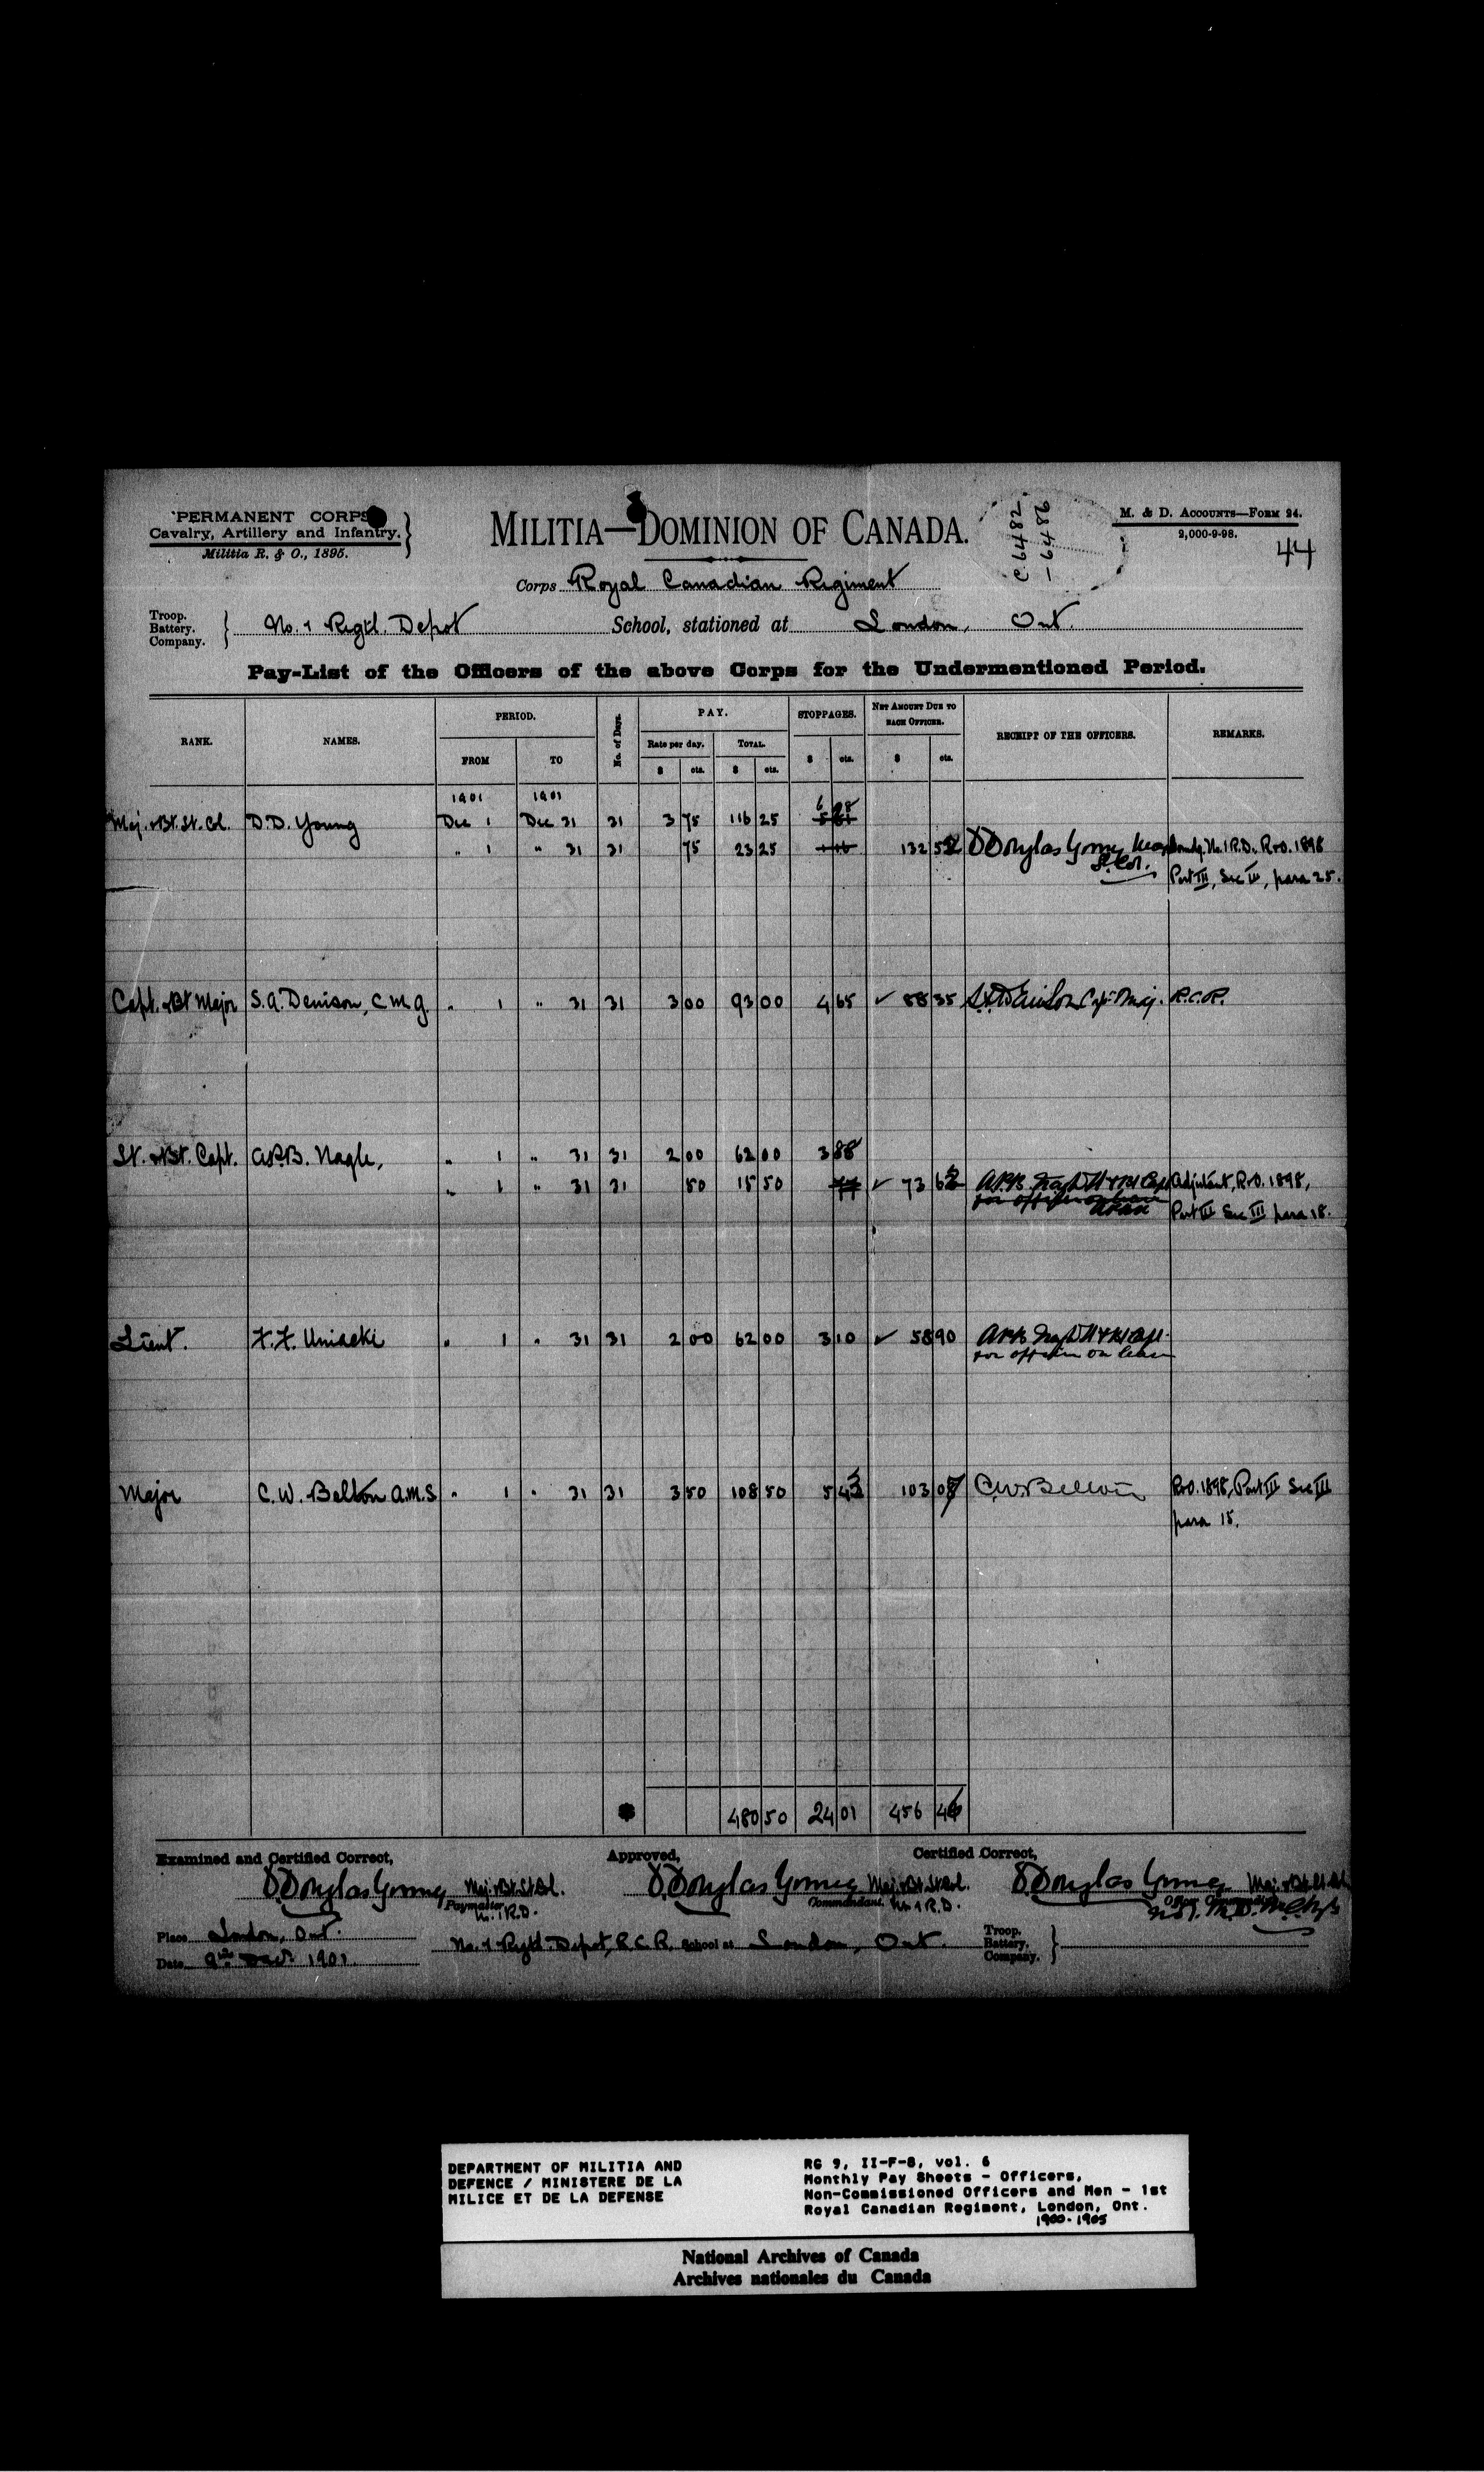 PERMANENT CORPS
Cavalry, Artillery and Infantry.
Militia R. & O., 1895.
MILITIA—DOMINION OF CANADA.
C 6482
- 6486
M. & D. ACCOUNTS—FORM 24.
2,000-9-98.
44
Corps Royal Canadian Regiment
Troop.
Battery.
Company.
No. 1 Regtl. Depot School, stationed at London, Ont.
Pay-List of the Officers of the above Corps for the Undermentioned Period.
RANK. NAMES. PERIOD. No. of Days. PAY. STOPPAGES. NET AMOUNT DUE TO EACH OFFICER. RECEIPT OF THE OFFICERS. REMARKS.
FROM TO Rate per day. TOTAL. $ cts. $ cts.
$ cts. $ cts.
1901 1901 6 98
Maj. & Bt. Lt. Col. D.D. Young Dec 1 Dec 31 31 3 75 116 25 5 81
" 1 " 31 31 75 23 25 1 16 132 52 D Douglas Young Comdg. No. 1 R.D. R&O. 1898
Lt. Col. Part III, Sec III, para 25.
Capt. & Bt Major S.A. Denison, C M G " 1 " 31 31 3 00 93 00 4 65 ✓ 88 35 S.A. Denison Capt Maj. R.C.R.
Lt. & Bt. Capt. A.P.B. Nagle, " 1 " 31 31 2 00 62 00 3 88
" 1 " 31 31 50 15 50 77 ✓ 73 62 A.P.B. Nagle Lt & Bt Capt Adjutant, R&O. 1898,
Part III Sec III para 18.
Lieut. F.F. Uniacke " 1 " 31 31 2 00 62 00 3 10 ✓ 58 90 A.P.B. Nagle Lt & Bt Capt.
for officer on leave
Major C. W. Belton A.M.S " 1 " 31 31 3 50 108 50 5 43 103 07 C.W. Belton R&O. 1898, Part III Sec III
para 15.
480 50 24 01 456 46
Examined and Certified Correct, Approved, Certified Correct,
D. Douglas Young Maj. & Bt. Lt. Col. D. Douglas Young Maj. & Bt. Lt. Col. D. Douglas Young Maj. & Bt. Lt. Col.
Paymaster Commandant. No 1 R.D. Officer Commanding
No. 1 R.D.
Place London, Ont.
No. 1 Regtl. Depot, R.C.R. School at London, Ont. Troop.
Battery.
Company.
Date 9th Dec. 1901.
DEPARTMENT OF MILITIA AND
DEFENCE / MINISTERE DE LA
MILICE ET DE LA DEFENSE
RG 9, II-F-8, vol. 6
Monthly Pay Sheets - Officers,
Non-Commissioned Officers and Men - 1st
Royal Canadian Regiment, London, Ont.
1900-1905
National Archives of Canada
Archives nationales du Canada